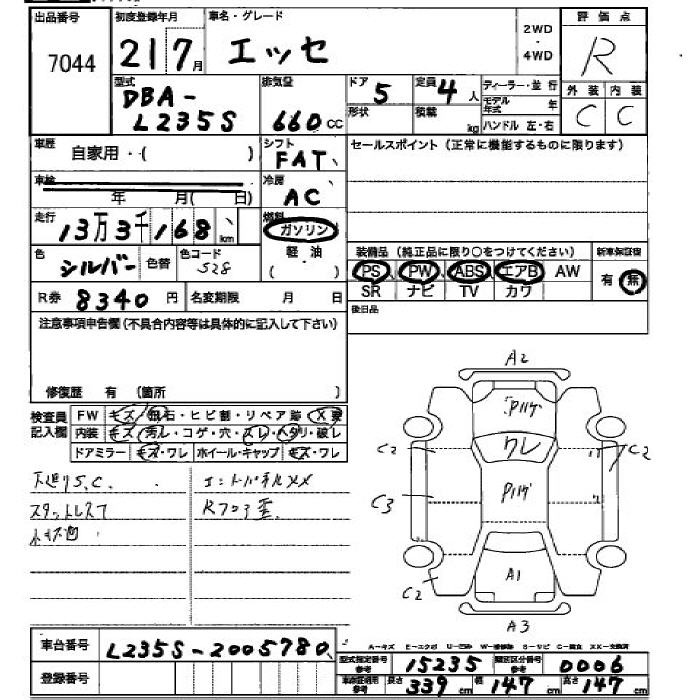 出品番号 初度登録年月 車名・グレード 評価点
7044 21 7月 エッセ 2WD・4WD R
型式 排気量 ドア 定員 ディーラー・並行 外装 内装
DBA-L235S 660cc 5 4人 モデル年式 年 C C
形状 積載 kg ハンドル 左・右
車歴 自家用・( ) シフト FAT セールスポイント(正常に機能するものに限ります)
車検 年 月( 日) 冷房 AC
走行 13万3千168km 燃料 ガソリン
軽油
( )
装備品(純正品に限り○をつけてください) 新車保証書
色 シルバー 色替 色コード S28
PS PW ABS エアB AW 有 無
SR ナビ TV カワ
R券 8340円 名変期限 月 日
後日品
注意事項申告欄(不具合内容等は具体的に記入して下さい)
修復歴 有(箇所 )
検査員記入欄
FW キズ・飛石・ヒビ割・リペア跡・X要
内装 キズ・汚れ・コゲ・穴・スレ・ヘタリ・破レ
ドアミラー キズ・ワレ ホイール・キャップ キズ・ワレ
下廻りS.C.
スタットレス
A2
ワレ
C2 C2
C3
A1
C2
A3
車台番号 L235S-2005780
登録番号
型式指定番号参考 15235 類別区分番号参考 0006
車体証明用参考 長さ 339cm 幅 147cm 高さ 147cm